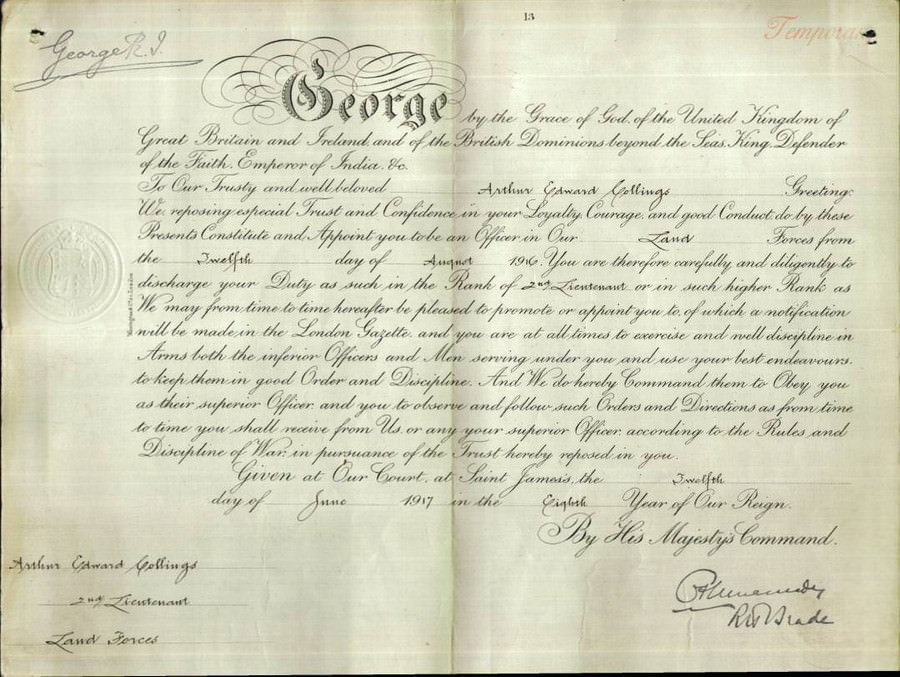 13
Temporary
George R.I.
George by the Grace of God, of the United Kingdom of
Great Britain and Ireland, and of the British Dominions beyond the Seas, King, Defender
of the Faith, Emperor of India, &c.
To Our Trusty and well beloved Arthur Edward Collings Greeting:
We, reposing especial Trust and Confidence in your Loyalty, Courage, and good Conduct, do by these
Presents Constitute and Appoint you to be an Officer in Our Land Forces from
the Twelfth day of August 1916. You are therefore carefully and diligently to
discharge your Duty as such in the Rank of 2nd Lieutenant or in such higher Rank as
We may from time to time hereafter be pleased to promote or appoint you to, of which a notification
will be made in the London Gazette, and you are at all times to exercise and well discipline in
Arms both the inferior Officers and Men serving under you and use your best endeavours
to keep them in good Order and Discipline. And We do hereby Command them to Obey you
as their superior Officer, and you to observe and follow such Orders and Directions as from time
to time you shall receive from Us, or any your superior Officer, according to the Rules and
Discipline of War, in pursuance of the Trust hereby reposed in you.
Given at Our Court, at Saint James's, the Twelfth
day of June 1917 in the Eighth Year of Our Reign.
By His Majesty's Command.
Arthur Edward Collings
2nd Lieutenant
Land Forces
R H Brade